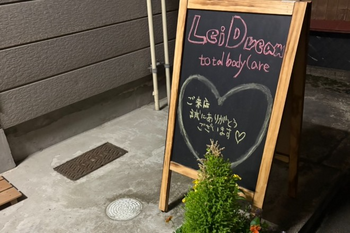 Lei Dream
total body care
ご来店
誠にありがとう
ございます♡